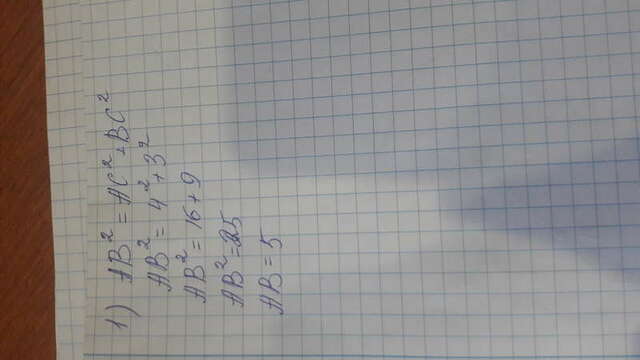 1) AB² = AC² + BC²
AB² = 4² + 3²
AB² = 16 + 9
AB² = 25
AB = 5